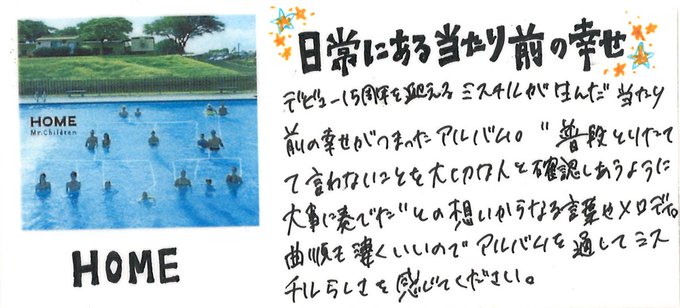 HOME
Mr.Children
HOME
日常にある当たり前の幸せ
デビュー15周年を迎えるミスチルが生んだ当たり
前の幸せがつまったアルバム。"普段とりたて
て言わないことを大切な人と確認しあうように
大事に奏でた"との想いからなる言葉やメロディ。
曲順も凄くいいのでアルバムを通してミス
チルらしさを感じてください。